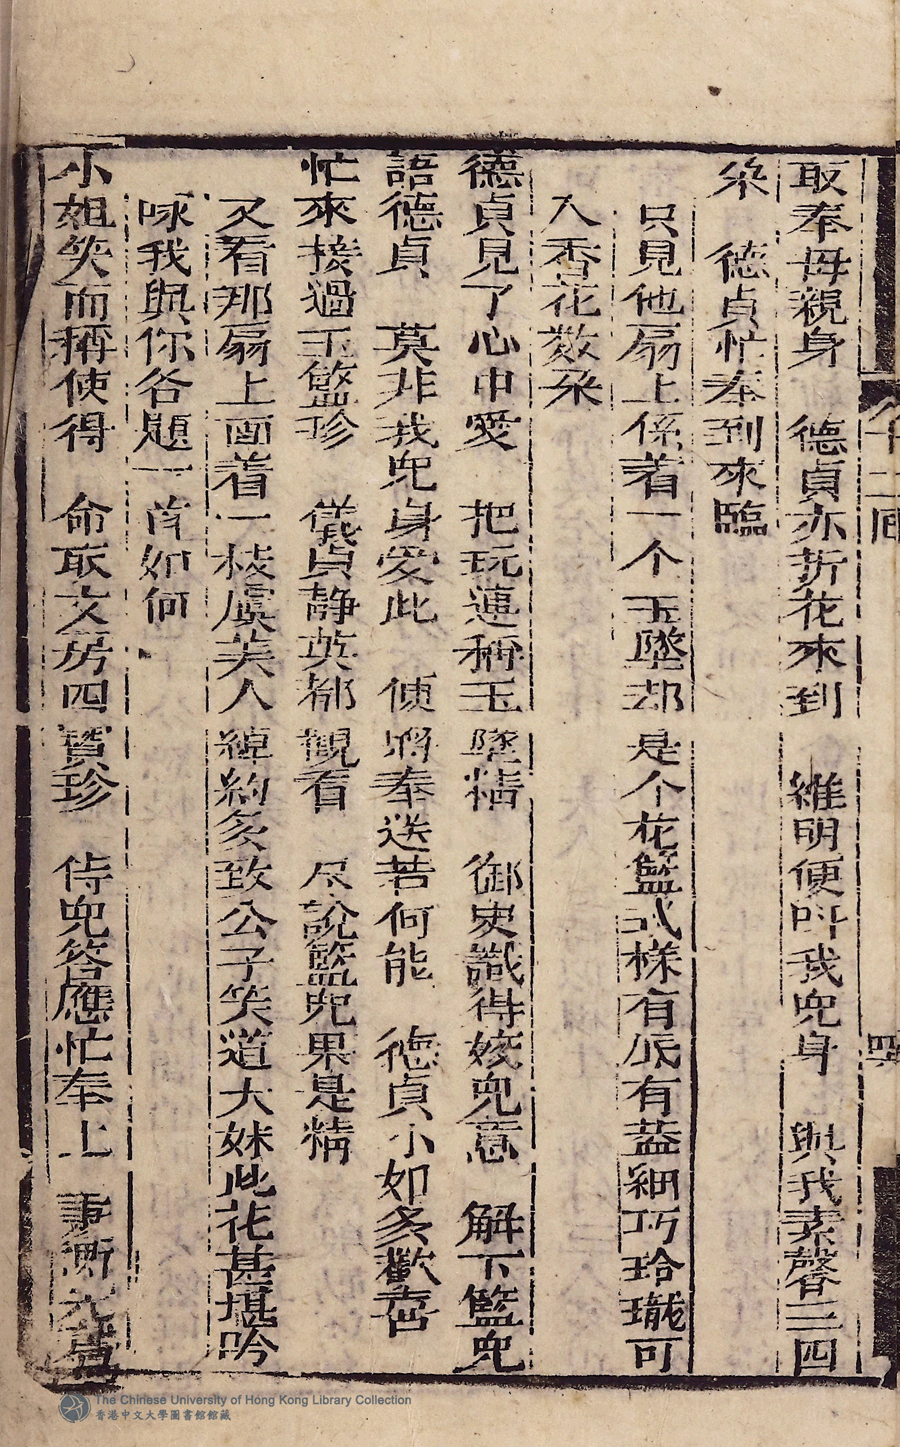 八十二回
四
取奉母親身　德貞亦折花來到　維明便叫我兒身　與我素聲三四
朶　德貞忙奉到來臨
只見他扇上係着一个玉墜却是个花籃式樣有底有蓋細巧玲瓏可
入香花数朶
德貞見了心中愛　把玩連稱玉墜精　御史識得姣兒意　解下籃兒
語德貞　莫非我兒身愛此　便將奉送若何能　德貞小如多歡喜
忙來接過玉籃珍　儀貞静英都觀看　尽說籃兒果是精
又看那扇上面着一枝虞美人綽約多致公子笑道大妹此花甚堪吟
咏我與你各題一首如何
小姐笑而稱使得　命取文房四寶珍　侍兒答應忙奉上　秉衡
The Chinese University of Hong Kong Library Collection
香港中文大學圖書館館藏